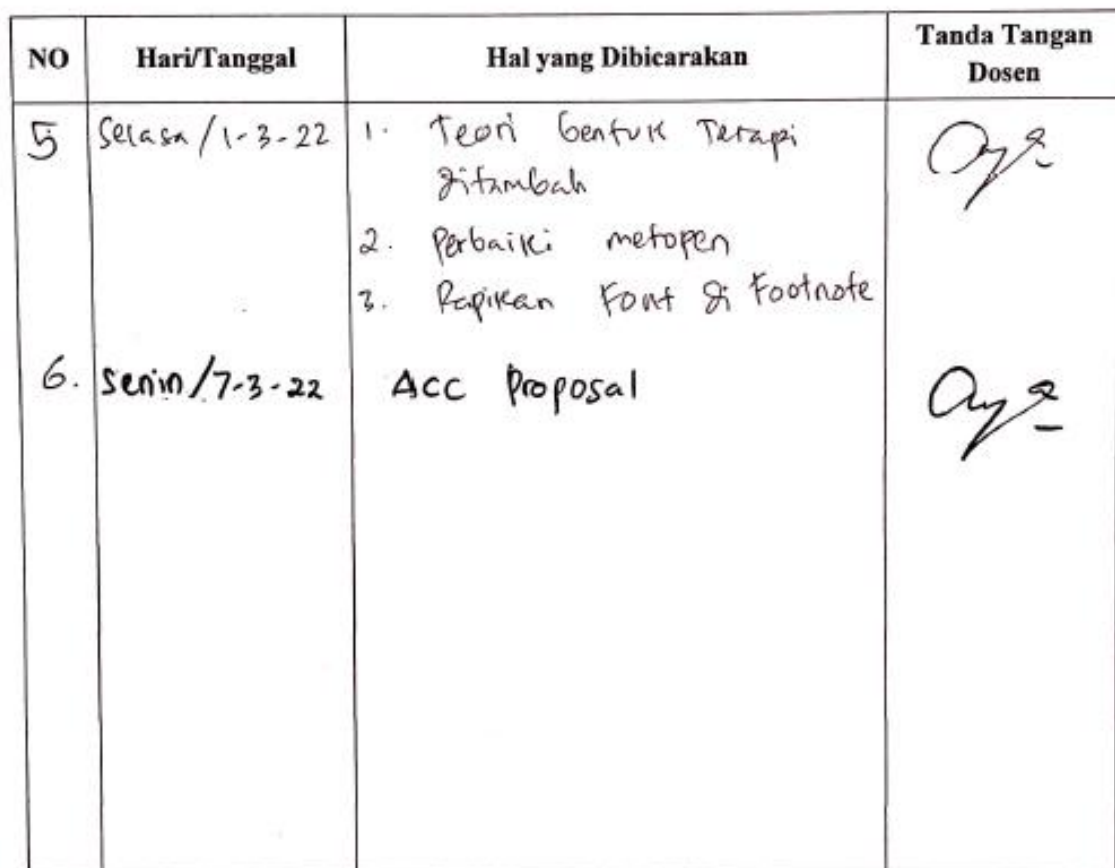 NO Hari/Tanggal Hal yang Dibicarakan Tanda Tangan
Dosen
5 Selasa/1-3-22 1. Teori bentuk Terapi
ditambah
2. Perbaiki metopen
3. Rapikan Font di Footnote
6. Senin/7-3-22 ACC Proposal